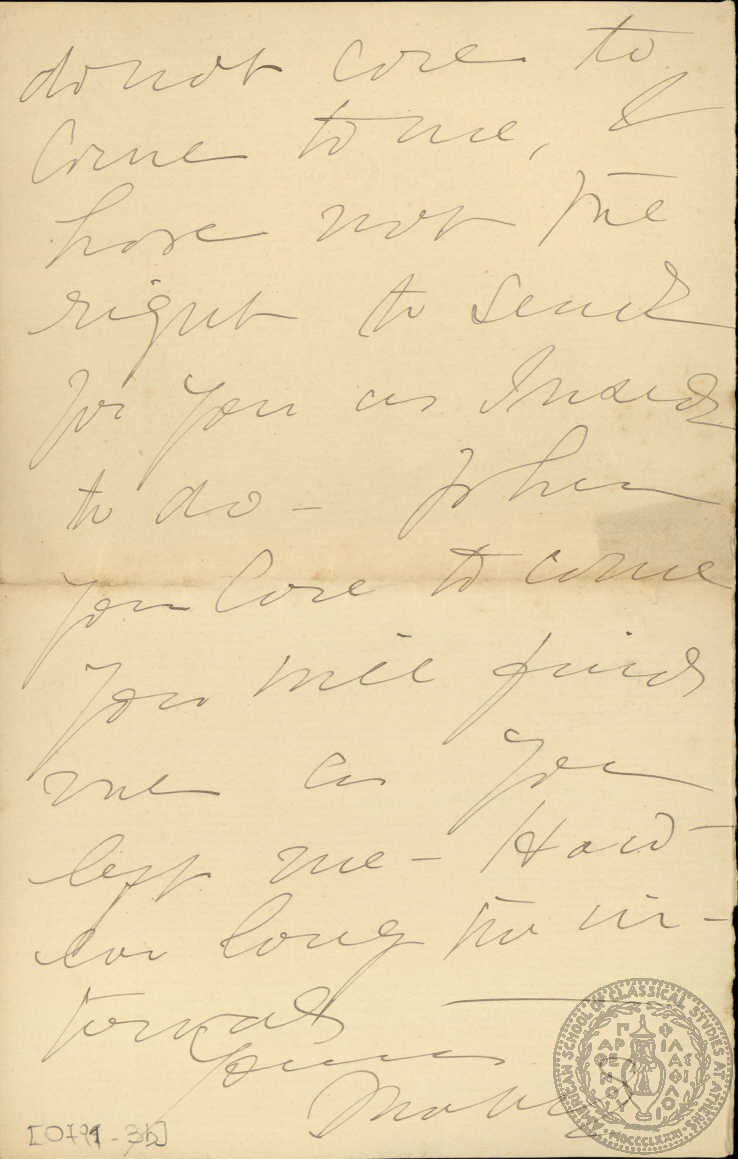 do not care to
come to me, &
have not the
right to send
for you as I used
to do – When
you care to come
you will find
me as you
left me – How-
ever long the in-
terval
Yours
[0791-3b]
AMERICAN SCHOOL OF CLASSICAL STUDIES AT ATHENS
MDCCCLXXXI